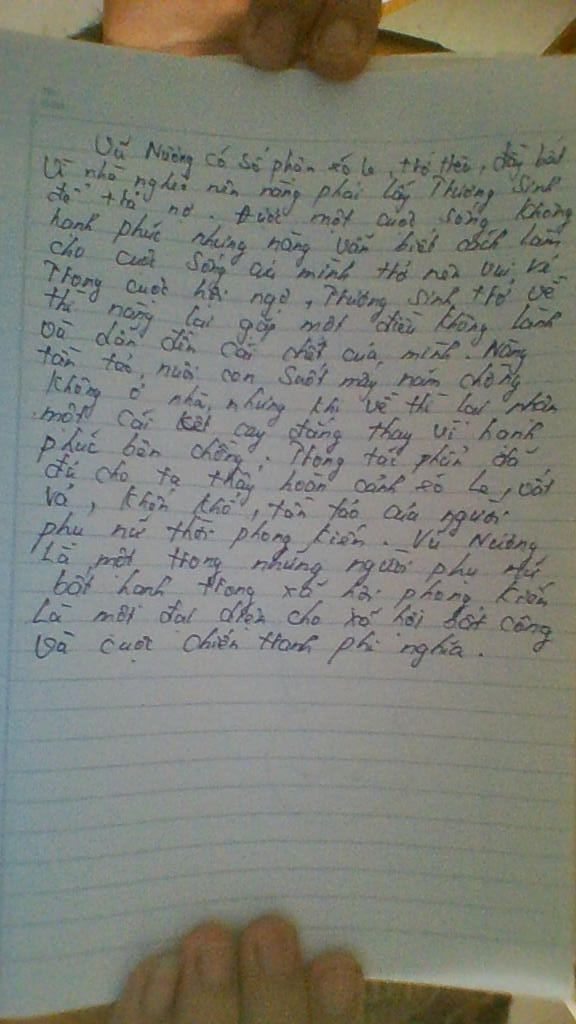 Vũ Nương có số phận éo le, trớ trêu, đầy bất
Vì nhà nghèo nên nàng phải lấy Trương Sinh
để trả nợ. Được một cuộc sống không
hạnh phúc nhưng nàng vẫn biết cách làm
cho cuộc sống của mình trở nên vui vẻ
Trong cuộc hội ngộ, Trương Sinh trở về
thì nàng lại gặp một điều không lành
và dẫn đến cái chết của mình. Nàng
tần tảo, nuôi con suốt mấy năm chồng
không ở nhà, nhưng khi về thì lại nhận
một cái kết cay đắng thay vì hạnh
phúc bên chồng. Trong tác phẩm đã
đủ cho ta thấy hoàn cảnh éo le, vất
vả, khốn khổ, tần tảo của người
phụ nữ thời phong kiến. Vũ Nương
là một trong những người phụ nữ
bất hạnh trong xã hội phong kiến
là một đại diện cho xã hội bất công
và cuộc chiến tranh phi nghĩa.